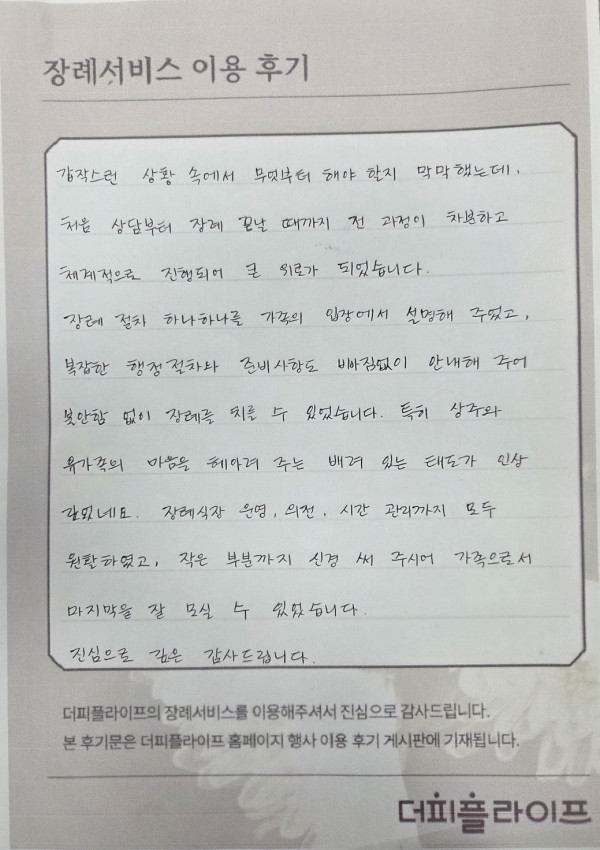 장례서비스 이용 후기
갑작스런 상황 속에서 무엇부터 해야 할지 막막했는데,
처음 상담부터 장례 끝날 때까지 전 과정이 차분하고
체계적으로 진행되어 큰 위로가 되었습니다.
장례 절차 하나하나를 가족의 입장에서 설명해 주었고,
복잡한 행정절차와 준비사항도 빠짐없이 안내해 주어
불안함 없이 장례를 치를 수 있었습니다. 특히 상주와
유가족의 마음을 헤아려 주는 배려 있는 태도가 인상
깊었네요. 장례식장 운영, 의전, 시간 관리까지 모두
원활하였고, 작은 부분까지 신경 써 주시어 가족으로서
마지막을 잘 모실 수 있었습니다.
진심으로 깊은 감사드립니다.
더피플라이프의 장례서비스를 이용해주셔서 진심으로 감사드립니다.
본 후기문은 더피플라이프 홈페이지 행사 이용 후기 게시판에 기재됩니다.
더피플라이프